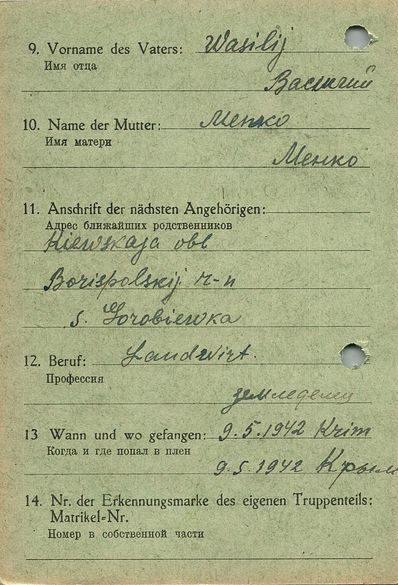 9. Vorname des Vaters: Wasilij
Имя отца
Василий
10. Name der Mutter: Менко
Имя матери
Менко
11. Anschrift der nächsten Angehörigen:
Адрес ближайших родственников
Kiewskaja obl
Borispolskij r-n
s. Gorobiewka
12. Beruf: Landwirt.
Профессия
земледелец
13 Wann und wo gefangen: 9.5.1942 Krim
Когда и где попал в плен
9.5.1942 Крым
14. Nr. der Erkennungsmarke des eigenen Truppenteils:
Matrikel-Nr.
Номер в собственной части